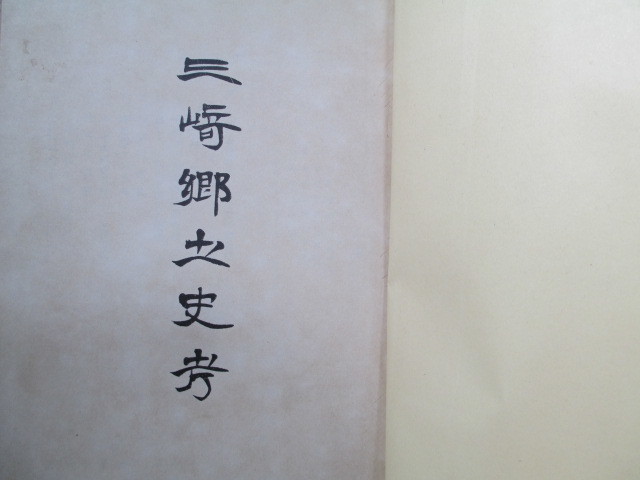 三﨑郷土史考